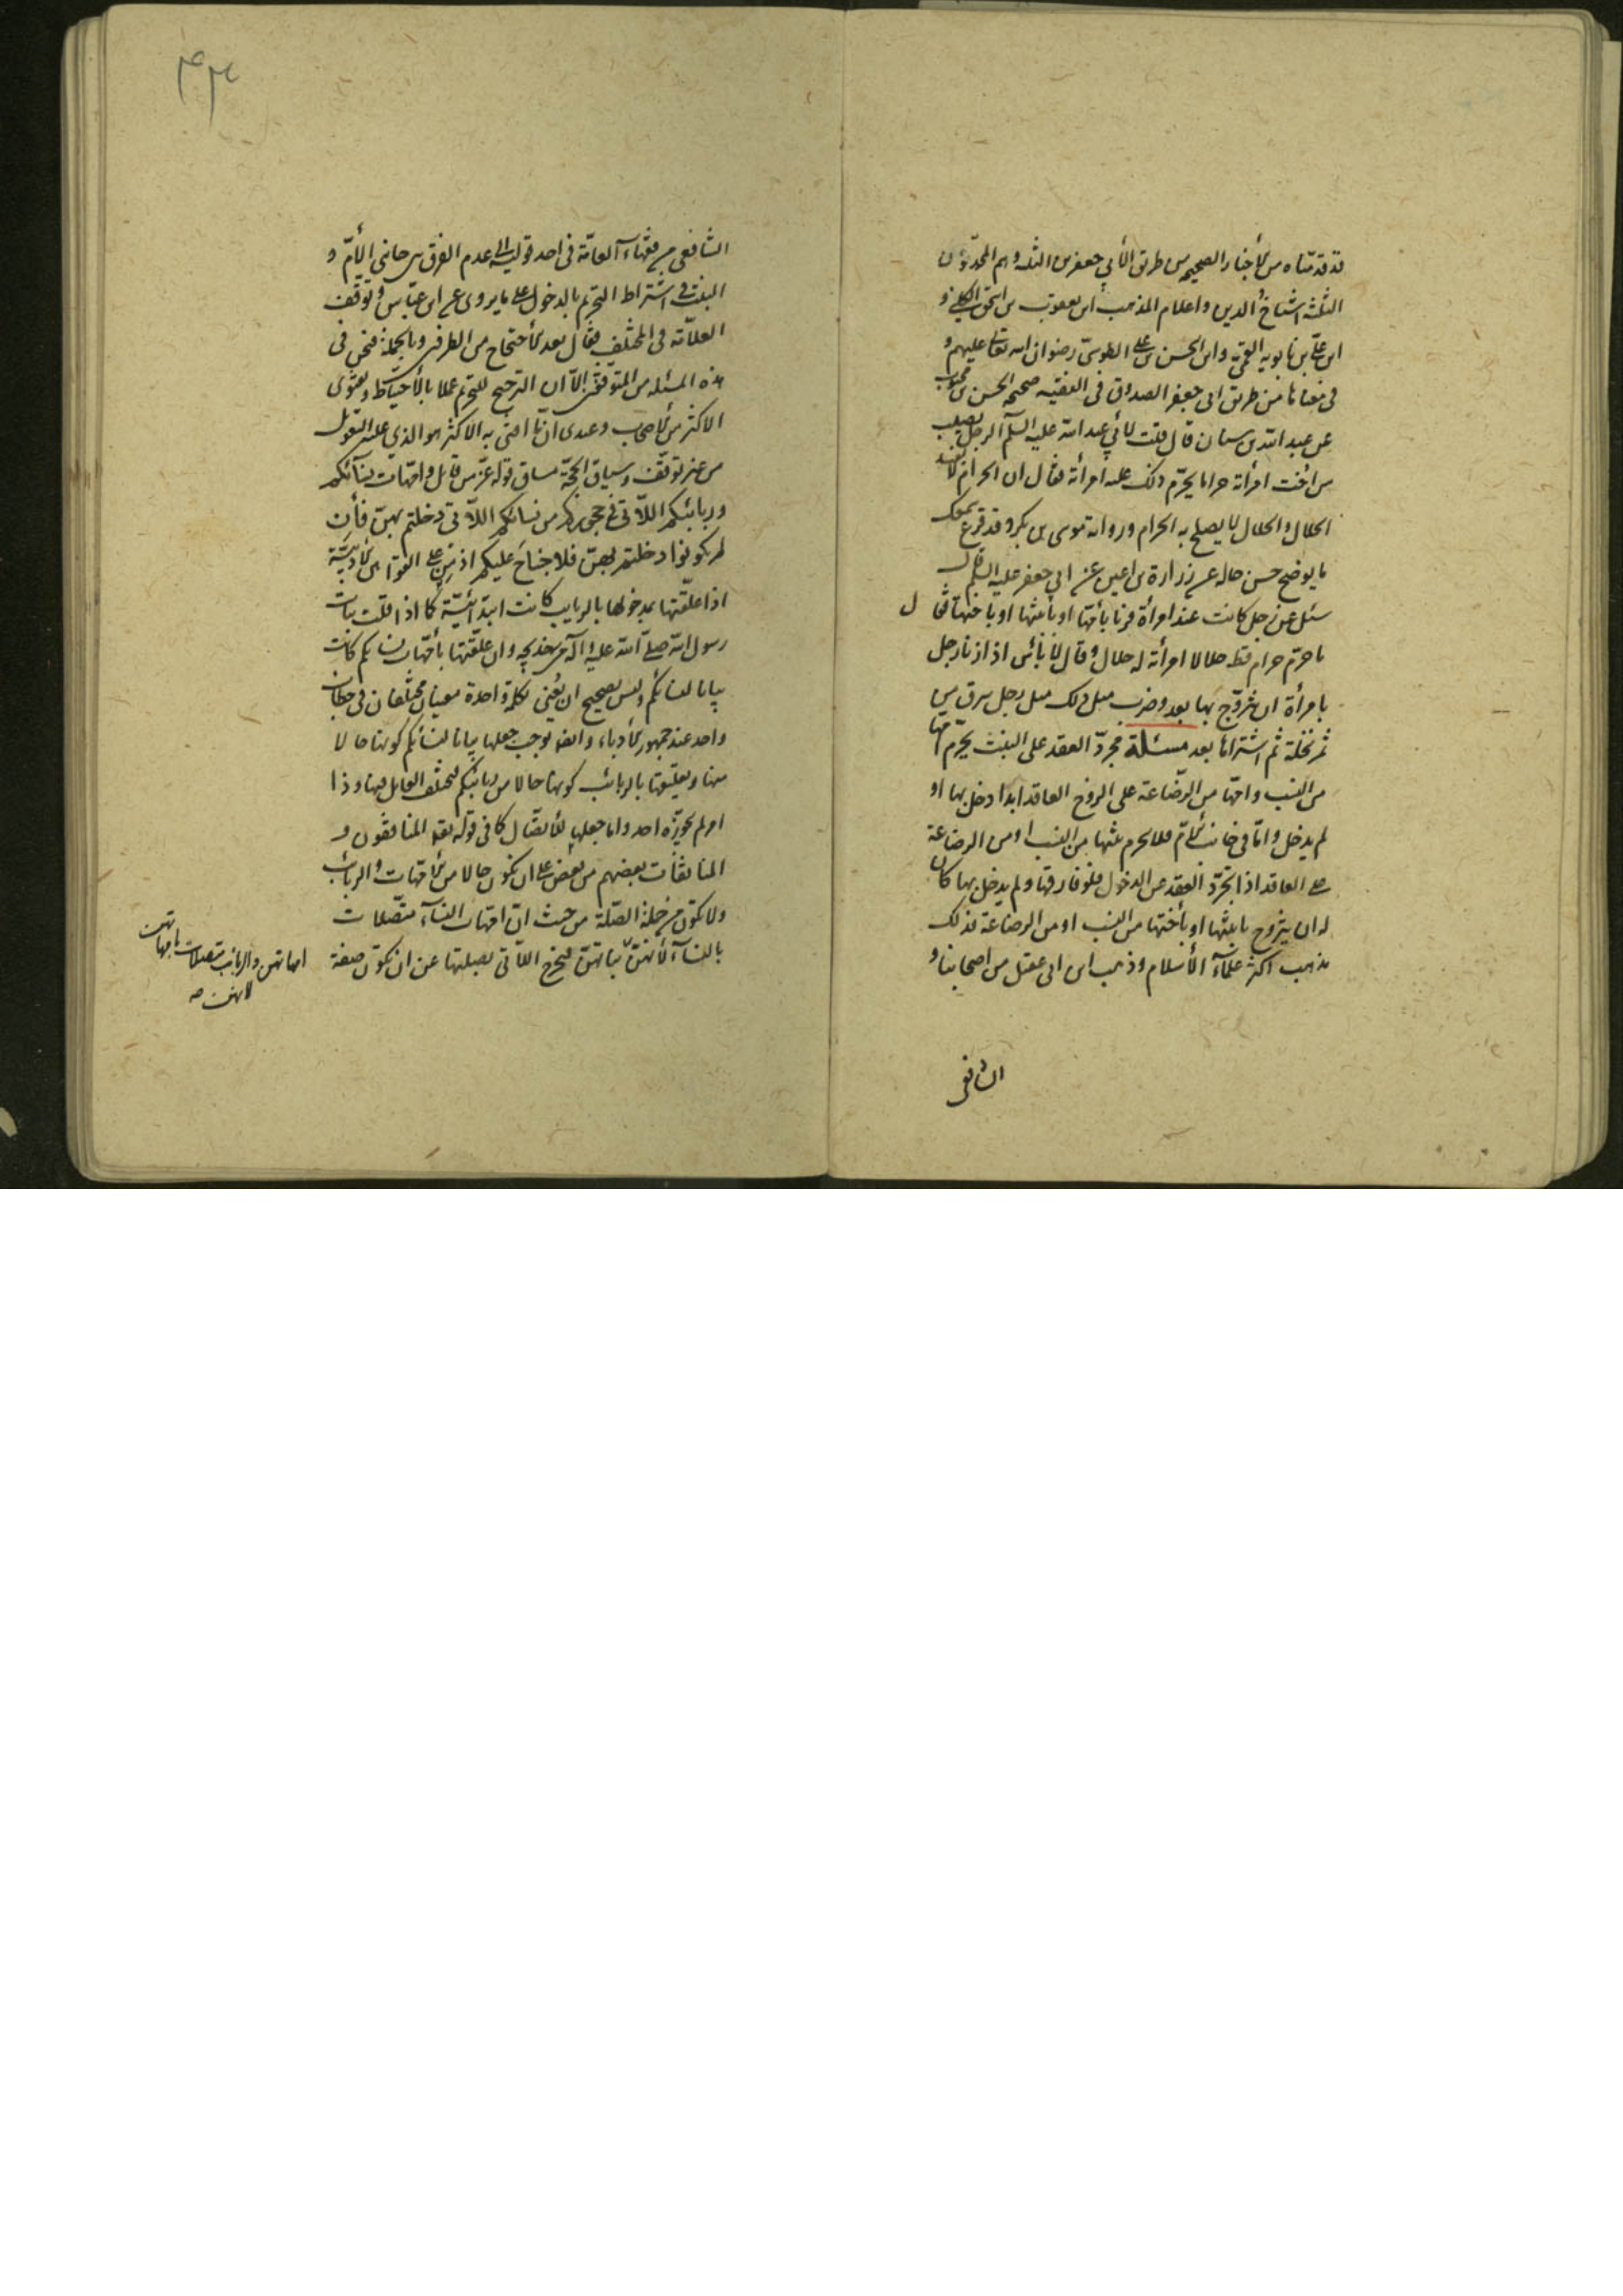 قد قدمناه من الأخبار الصحيحه من طرق الأبي جعفرين الثلثه وهم المحمدون
الثلثة اشياخ الدين واعلام المذهب ابن يعقوب بن اسحق الكليني و
ابن علي بن بابويه القمي وابن الحسن بن علي الطوسي رضوان الله تعالى عليهم و
في معناها من طريق ابي جعفر الصدوق في الفقيه صحيحه الحسن بن محبوب
عن عبد الله بن سنان قال قلت لأبي عبد الله عليه السلم الرجل يصيب
من اخت امرأته حراما يحرم ذلك عليه امرأته فقال ان الحرام لا يفسد
الحلال والحلال لا يصلح به الحرام ورواية موسى بن بكر وقد قرع سمعك
ما يوضح حسن حاله عن زرارة بن اعين عن ابي جعفر عليه السلم قال
سئل عن رجل كانت عنده امرأة فزنا بأمها او بابنتها او باختها فقال
ما حرم حرام قط حلالا امرأته له حلال وقال لا بأس اذا زنا رجل
بامرأة ان يتزوج بها بعد وضرب مثل ذلك مثل رجل سرق من
ثمر نخلة ثم اشتراها بعد مسئلة مجرد العقد على البنت يحرم امها
من النسب وامها من الرضاعة على الزوج العاقد ابدا دخل بها او
لم يدخل واما في جانب الأم فلا يحرم بنتها من النسب او من الرضاعة
على العاقد اذا تجرد العقد عن الدخول فلو فارقها ولم يدخل بها كان
له ان يتزوج بابنتها او بأختها من النسب او من الرضاعة فذلك
مذهب اكثر علماء الأسلام وذهب ابن ابي عقيل من اصحابنا و
الشافعي
الشافعي من فقهاء العامة في احد قوليه الى عدم الفرق بين جانبي الأم و
البنت في اشتراط التحريم بالدخول على ما يروى عن ابن عباس وتوقف
العلامة في المختلف فقال بعد الأحتجاج من الطرفين وبالجملة فنحن في
هذه المسئلة من المتوقفين الا ان الترجيح للتحريم عملا بالأحتياط وبفتوى
الاكثر من الأصحاب وعندي ان ما افتى به الاكثر هو الذي عليه التعويل
من غير توقف وسياق الحجة مساق قوله عز من قائل وامهات نسآئكم
وربائبكم اللاتي في حجوركم من نسائكم اللاتي دخلتم بهن فأن
لم تكونوا دخلتم بهن فلا جناح عليكم اذ من على القوانين الأدبية
اذا علقتها بمدخولها بالربايب كانت ابتدائية كما اذا قلت بنات
رسول الله صلى الله عليه وآله من خديجه وان علقتها بأمهات نسائكم كانت
بيانا لنسائكم وليس بصحيح ان يعنى بكلمة واحدة معنيان مختلفان في خطاب
واحد عند جمهور الأدباء وايضا يوجب جعلها بيانا لنسائكم كونها حالا
منها وتعليقها بالربائب كونها حالا من ربائبكم فيختلف العامل فيها وذا
امر لم يجوزه احد واما جعلها للأتصال كما في قوله تعالى المنافقون و
المنافقات بعضهم من بعض على ان يكون حالا من الأمهات والربائب
ولا تكون من جملة الصلة من حيث ان امهات النسآء متصلات
بالنسآء لأنهن بناتهن فيخرج اللاتي بصلتها عن ان تكون صفة
امهاتهن والربائب متصلات بامهاتهن
لانهن صه